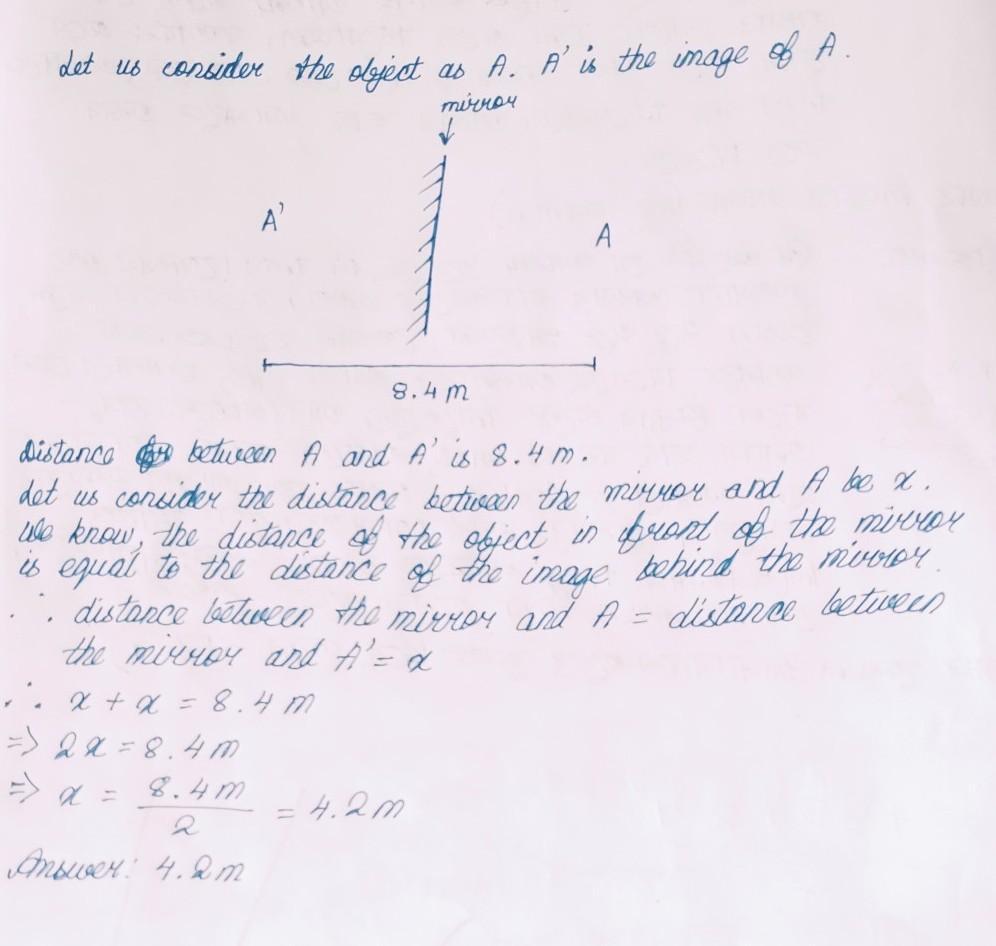 Let us consider the object as A. A' is the image of A.
mirror
A'
A
8.4 m
Distance between A and A' is 8.4 m.
Let us consider the distance between the mirror and A be x.
We know, the distance of the object in front of the mirror
is equal to the distance of the image behind the mirror.
∴ distance between the mirror and A = distance between
the mirror and A' = x
∴ x + x = 8.4 m
=> 2x = 8.4 m
=> x = 8.4 m / 2 = 4.2 m
Answer: 4.2 m